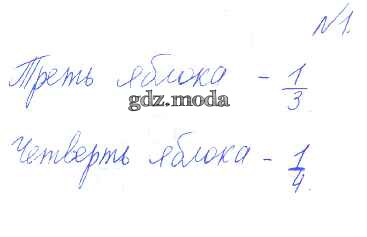 №1.
Треть яблока - 1/3.
gdz.moda
Четверть яблока - 1/4.